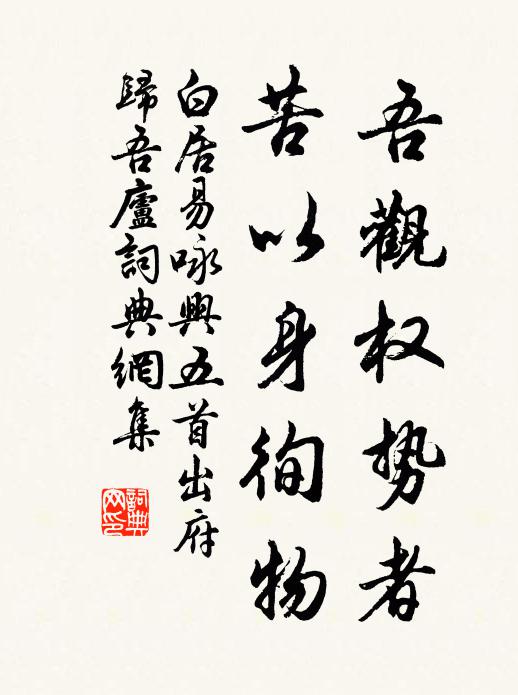 吾觀权势者
苦以身徇物
白居易咏興五首出府
歸吾廬詞典網集
詞典
网印